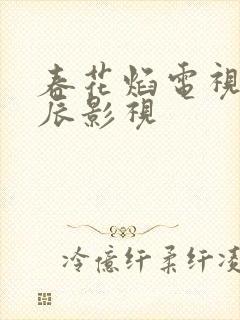 春花焰電視
辰影視
冷億纤柔纤凌